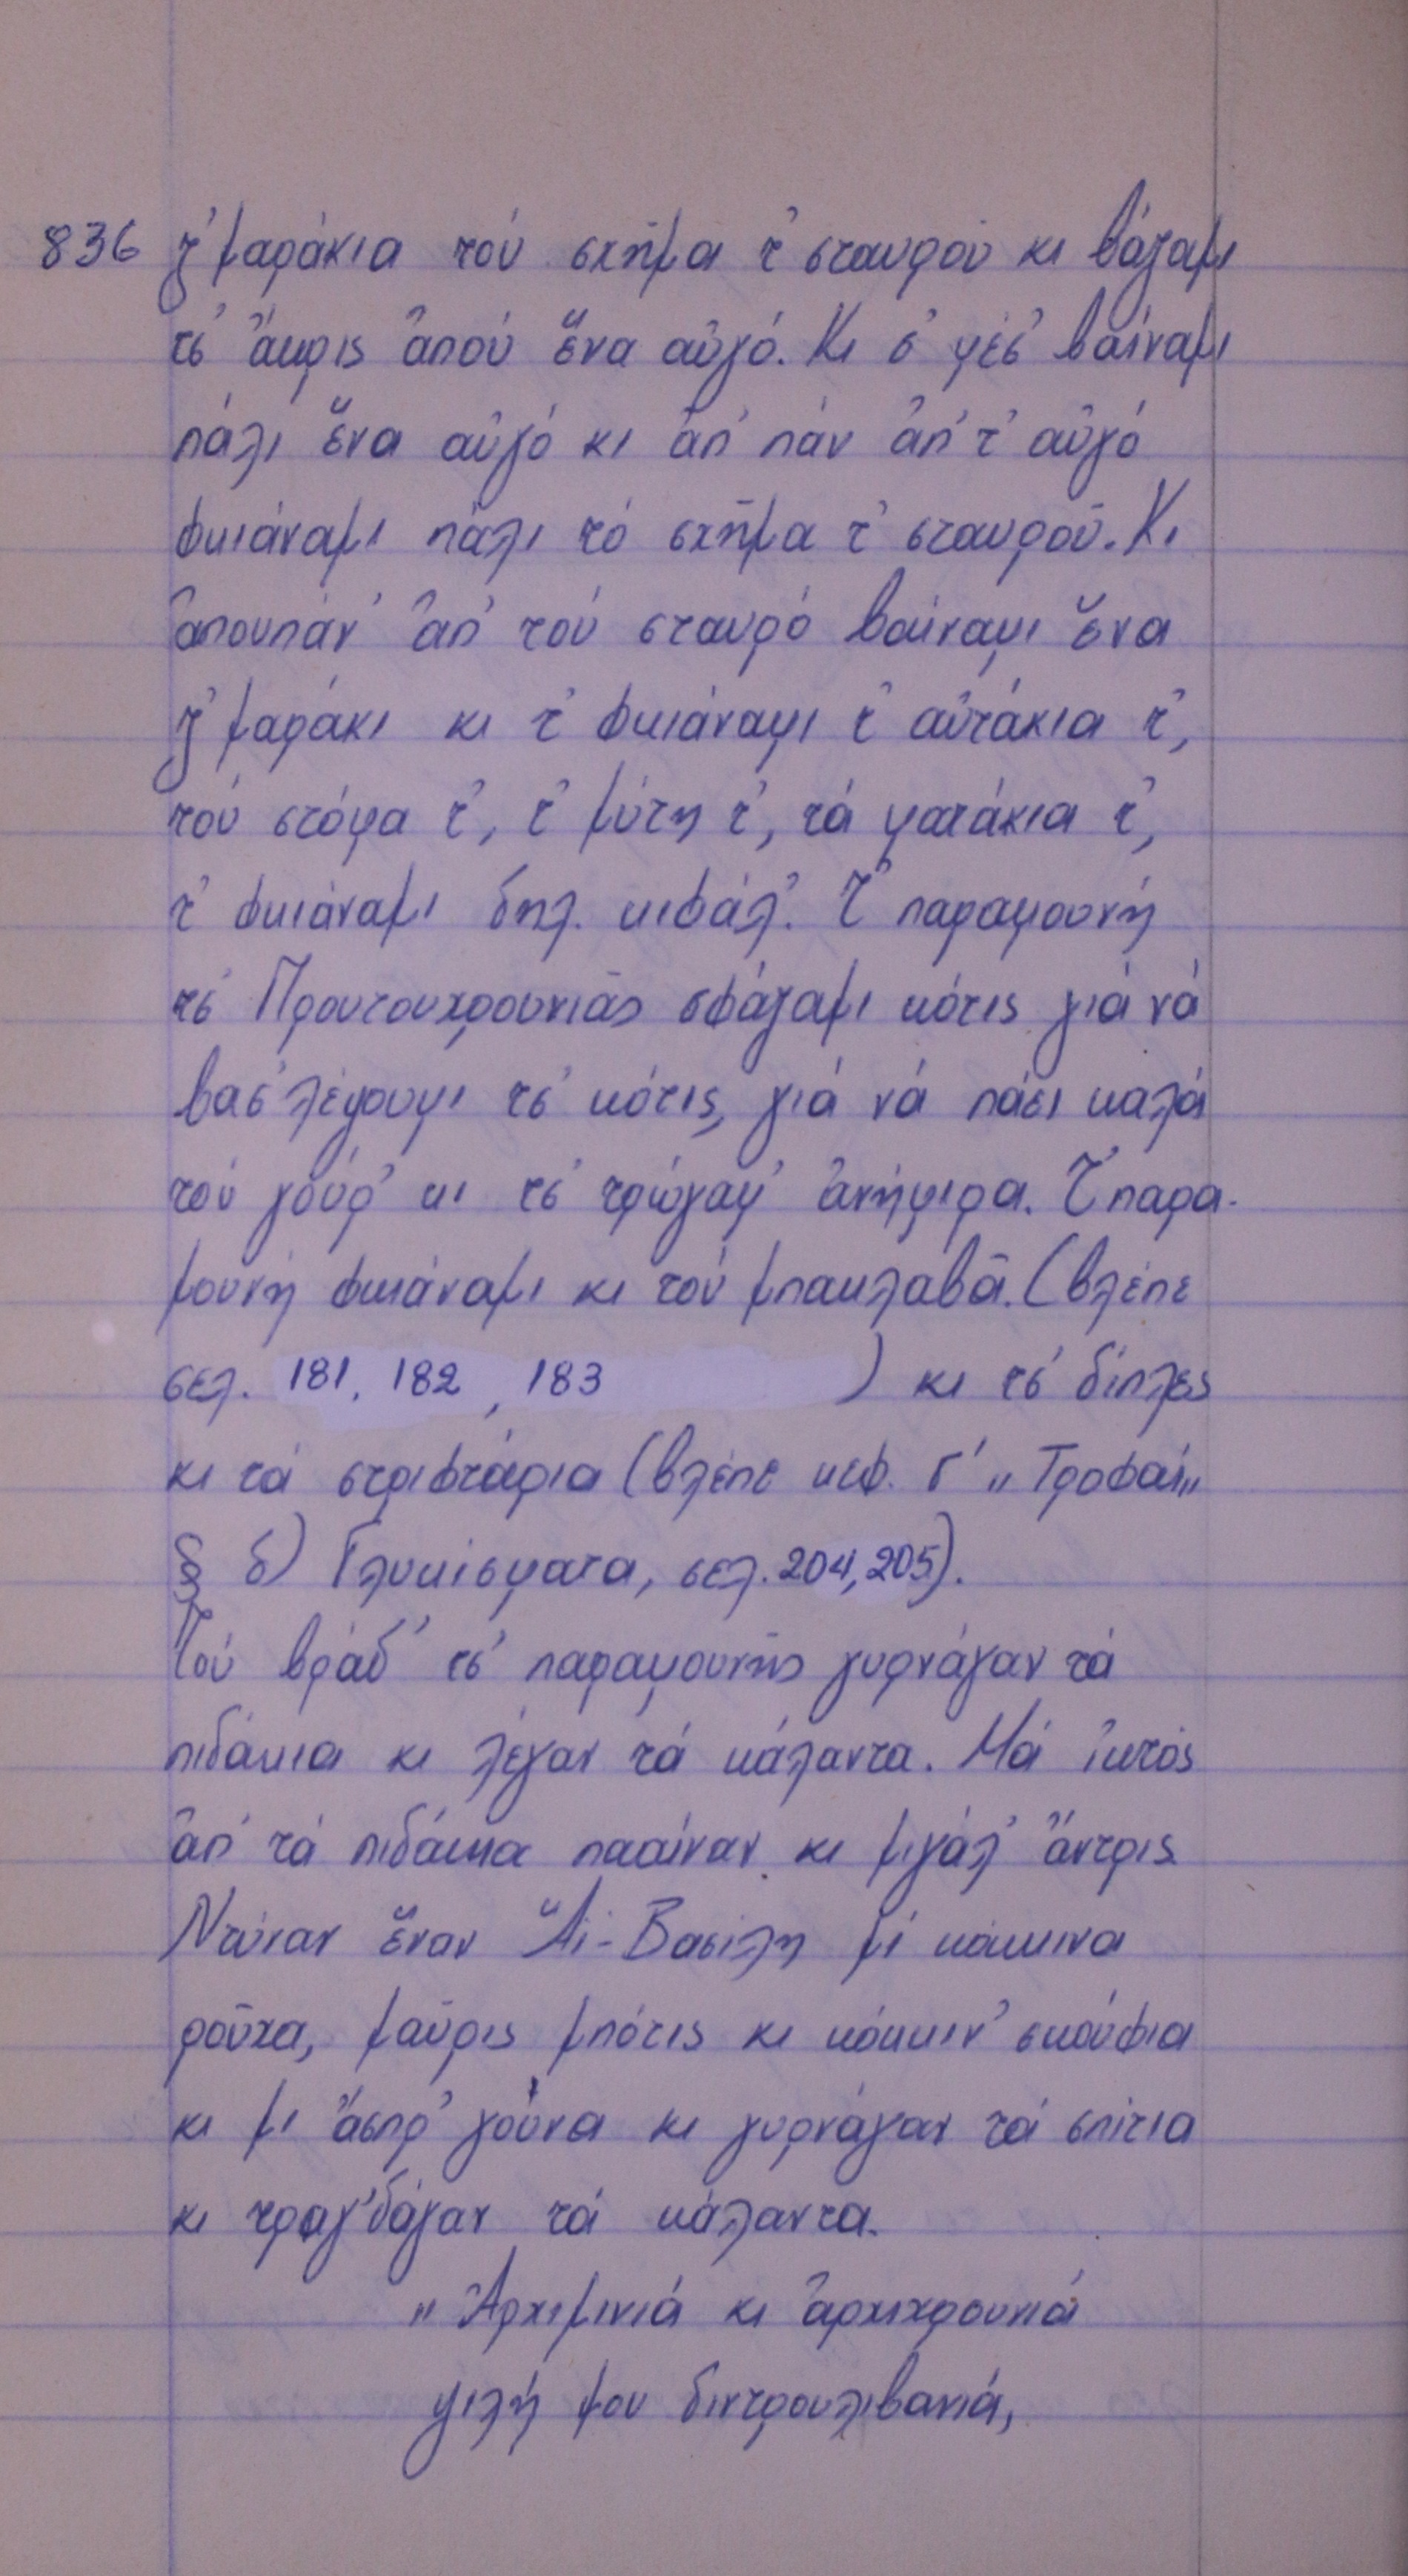 836 ζ’μαράκια τού σχῆμα τ’ σταυροῦ κι βάζαμι
τσ’ ἄκρις ἀπού ἕνα αὐγό. Κι σ’ μέσ’ βαίναμι
πάλι ἕνα αὐγό κι ἀπ’ πάν ἀπ’ τ’ αὐγό
φκιάναμι πάλι τό σχῆμα τ’ σταυροῦ. Κι
ἀπουπάν’ ἀπ’ τού σταυρό βαίναμι ἕνα
ζ’μαράκι κι τ’ φκιάναμι τ’ αὐτάκια τ’,
τού στόμα τ’, τ’ μύτη τ’, τά ματάκια τ’,
τ’ φκιάναμι δηλ. κιφάλ’. Τ’ παραμουνή
τσ’ Πρωτουχρουνιᾶς σφάζαμι κότις γιά νά
βασ’λέψουμι τσ’ κότις, γιά νά πάει καλά
τού γούρ’ κι τσ’ τρώγαμ’ ἀνήμιρα. Τ’ παρα-
μουνή φκιάναμι κι τού μπακλαβᾶ. (βλέπε
σελ. 181, 182, 183 ) κι τσ’ δίπλες
κι τά στριφτάρια (βλέπε κεφ. Γ’ „Τροφαί„
§ δ) Γλυκίσματα, σελ. 204, 205).
Τού βράδ’ τσ’ παραμουνῆς γυρνάγαν τά
πιδάκια κι λέγαν τά κάλαντα. Μά ἰκτός
ἀπ’ τά πιδάκια πααίναν κι μιγάλ’ ἄντρις
Ντύναν ἕναν Ἄϊ-Βασίλη μί κόκκινα
ροῦχα, μαῦρις μπότις κι κόκκιν’ σκούφια
κι μι ἄσπρ’ γούνα κι γυρνάγαν τά σπίτια
κι τραγ’δάγαν τά κάλαντα.
„ Ἀρχιμινιά κι ἀρχιχρουνιά
ψιλή μου διντρουλιβανιά,